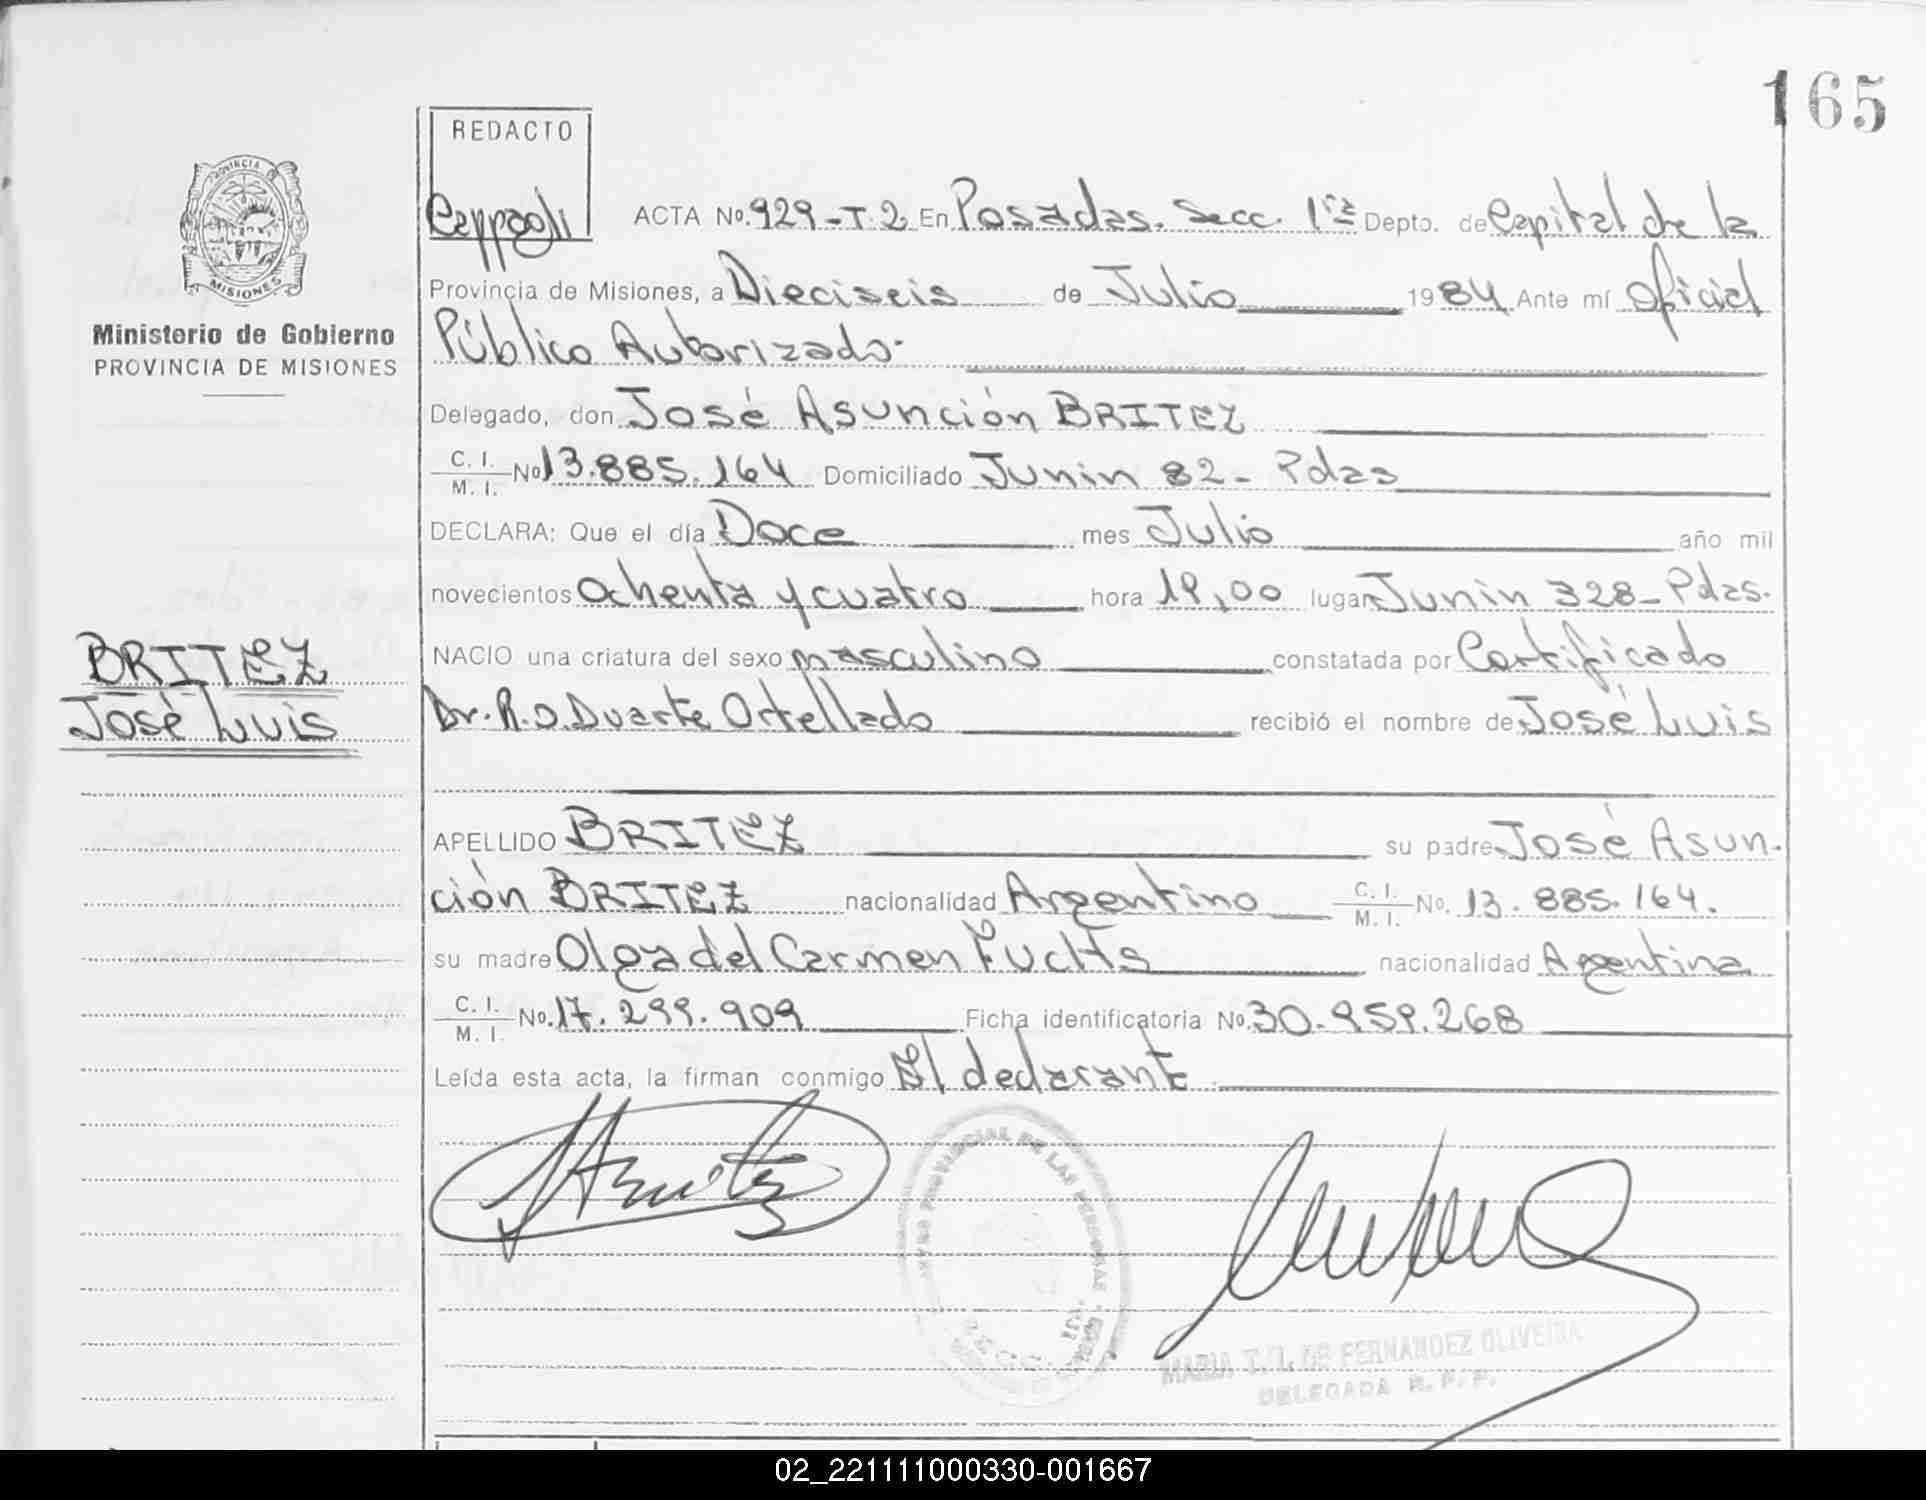 165
REDACTO
Ceppaoli ACTA No. 929-T.2 En Posadas. Secc. 1ra Depto. de Capital de la
PROVINCIA DE
MISIONES
Provincia de Misiones, a Dieciseis de Julio 1984 Ante mí Oficial
Ministerio de Gobierno
PROVINCIA DE MISIONES
Público Autorizado.
Delegado, don José Asunción BRITEZ
C. I. M. I. No 13.885.164 Domiciliado Junin 82- Pdas
DECLARA: Que el día Doce mes Julio año mil
novecientos Ochenta y cuatro hora 19,00 lugar Junin 328- Pdas.
BRITEZ
José Luis
NACIO una criatura del sexo masculino constatada por Certificado
Dr. R.O. Duarte Ortellado recibió el nombre de José Luis
APELLIDO BRITEZ su padre José Asun-
ción BRITEZ nacionalidad Argentino C. I. M. I. No. 13.885.164.
su madre Olga del Carmen FucHs nacionalidad Argentina
C. I. M. I. No. 17.299.909 Ficha identificatoria No. 30.959.268
Leída esta acta, la firman conmigo El declarante.
PROVINCIAL DE LAS PERSONAS
MARIA T. I. DE FERNANDEZ OLIVEIRA
DELEGADA R. P. P.
02_221111000330-001667